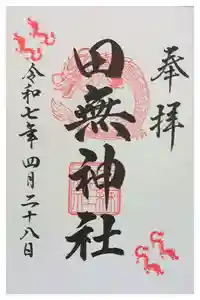 奉拝
田無神社
令和七年四月二十八日